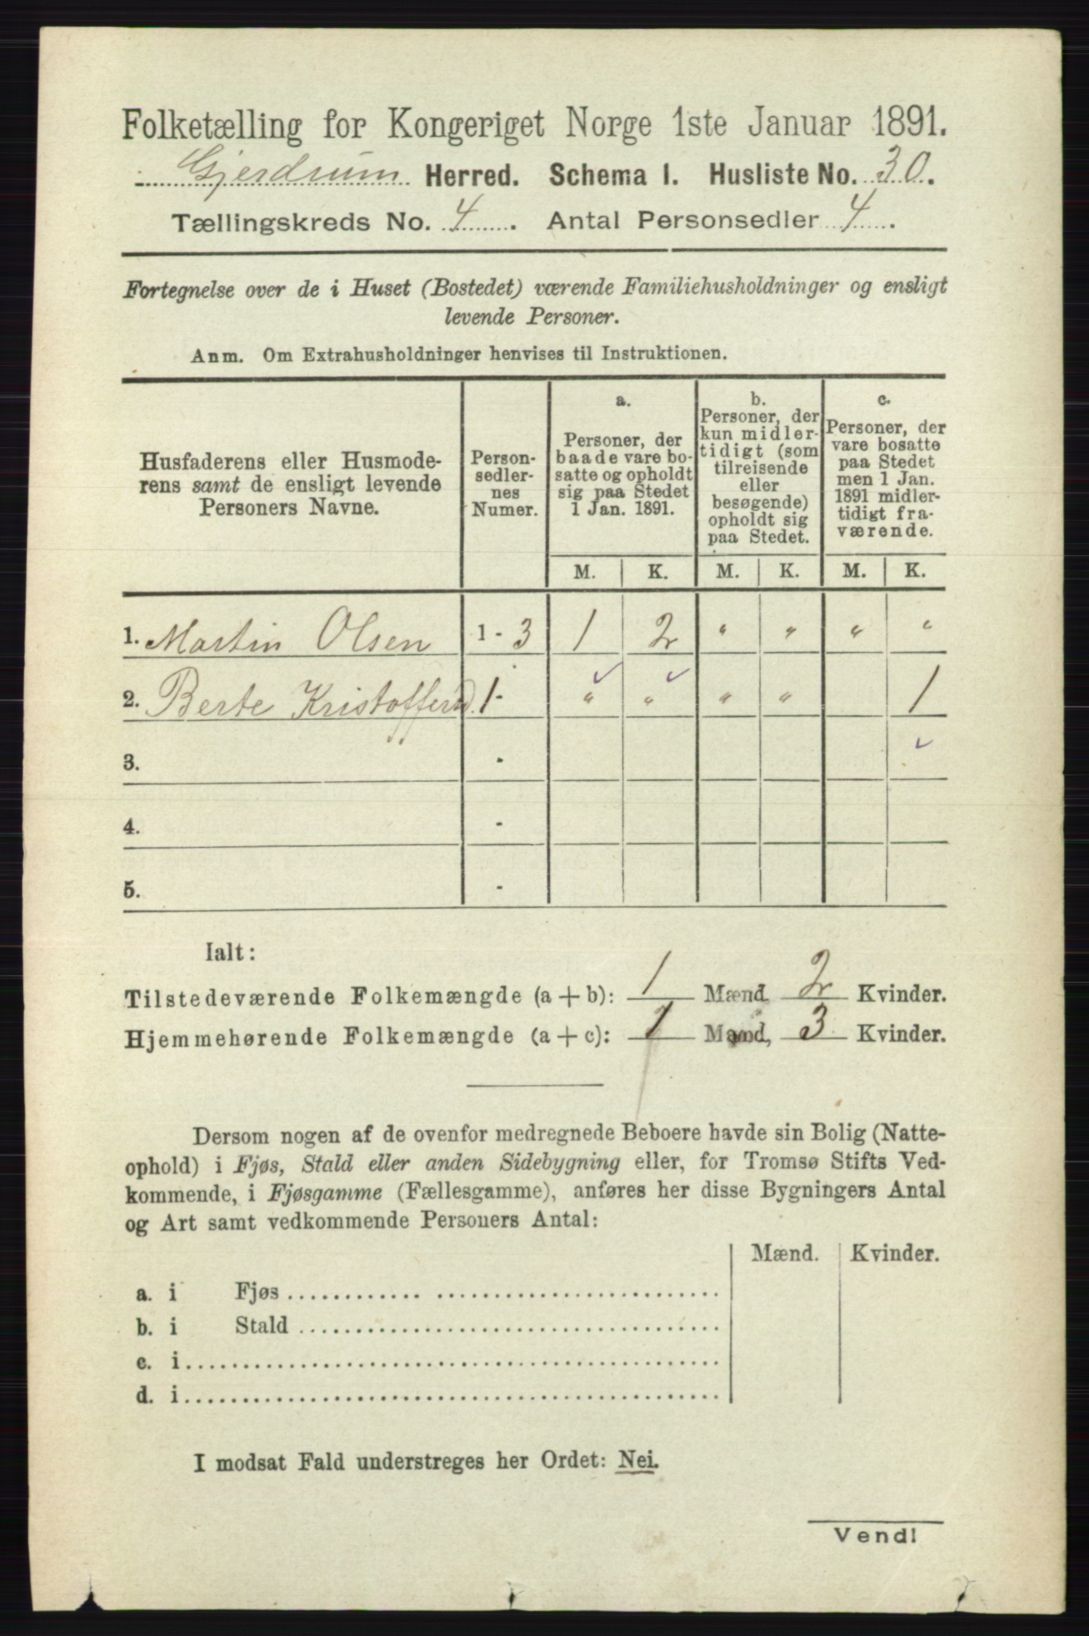 Folketælling for Kongeriget Norge 1ste Januar 1891.
Gjerdrum Herred. Schema I. Husliste No. 30.
Tællingskreds No. 4. Antal Personsedler 4.
Fortegnelse over de i Huset (Bostedet) værende Familiehusholdninger og ensligt
levende Personer.
Anm. Om Extrahusholdninger henvises til Instruktionen.
Husfaderens eller Husmode-
rens samt de ensligt levende
Personers Navne.
Person-
sedler-
nes
Numer.
a.
Personer, der
baade vare bo-
satte og opholdt
sig paa Stedet
1 Jan. 1891.
b.
Personer, der
kun midler-
tidigt (som
tilreisende
eller
besøgende)
opholdt sig
paa Stedet.
c.
Personer, der
vare bosatte
paa Stedet
men 1 Jan.
1891 midler-
tidigt fra-
værende.
M. K. M. K. M. K.
1. Martin Olsen 1 - 3 1 2 " " " "
2. Berte Kristofferd. 1 - " " " " 1
3. -
4. -
5. -
Ialt:
Tilstedeværende Folkemængde (a + b): 1 Mænd 2 Kvinder.
Hjemmehørende Folkemængde (a + c): 1 Mænd, 3 Kvinder.
Dersom nogen af de ovenfor medregnede Beboere havde sin Bolig (Natte-
ophold) i Fjøs, Stald eller anden Sidebygning eller, for Tromsø Stifts Ved-
kommende, i Fjøsgamme (Fællesgamme), anføres her disse Bygningers Antal
og Art samt vedkommende Personers Antal:
Mænd. Kvinder.
a. i Fjøs
b. i Stald
c. i
d. i
I modsat Fald understreges her Ordet: Nei.
Vend!